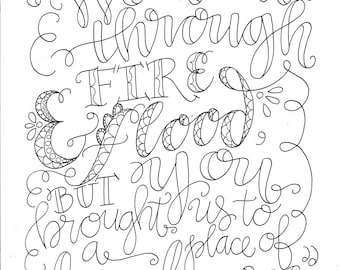 through
FIRE
& flood,
BUT you
brought us to
a place of